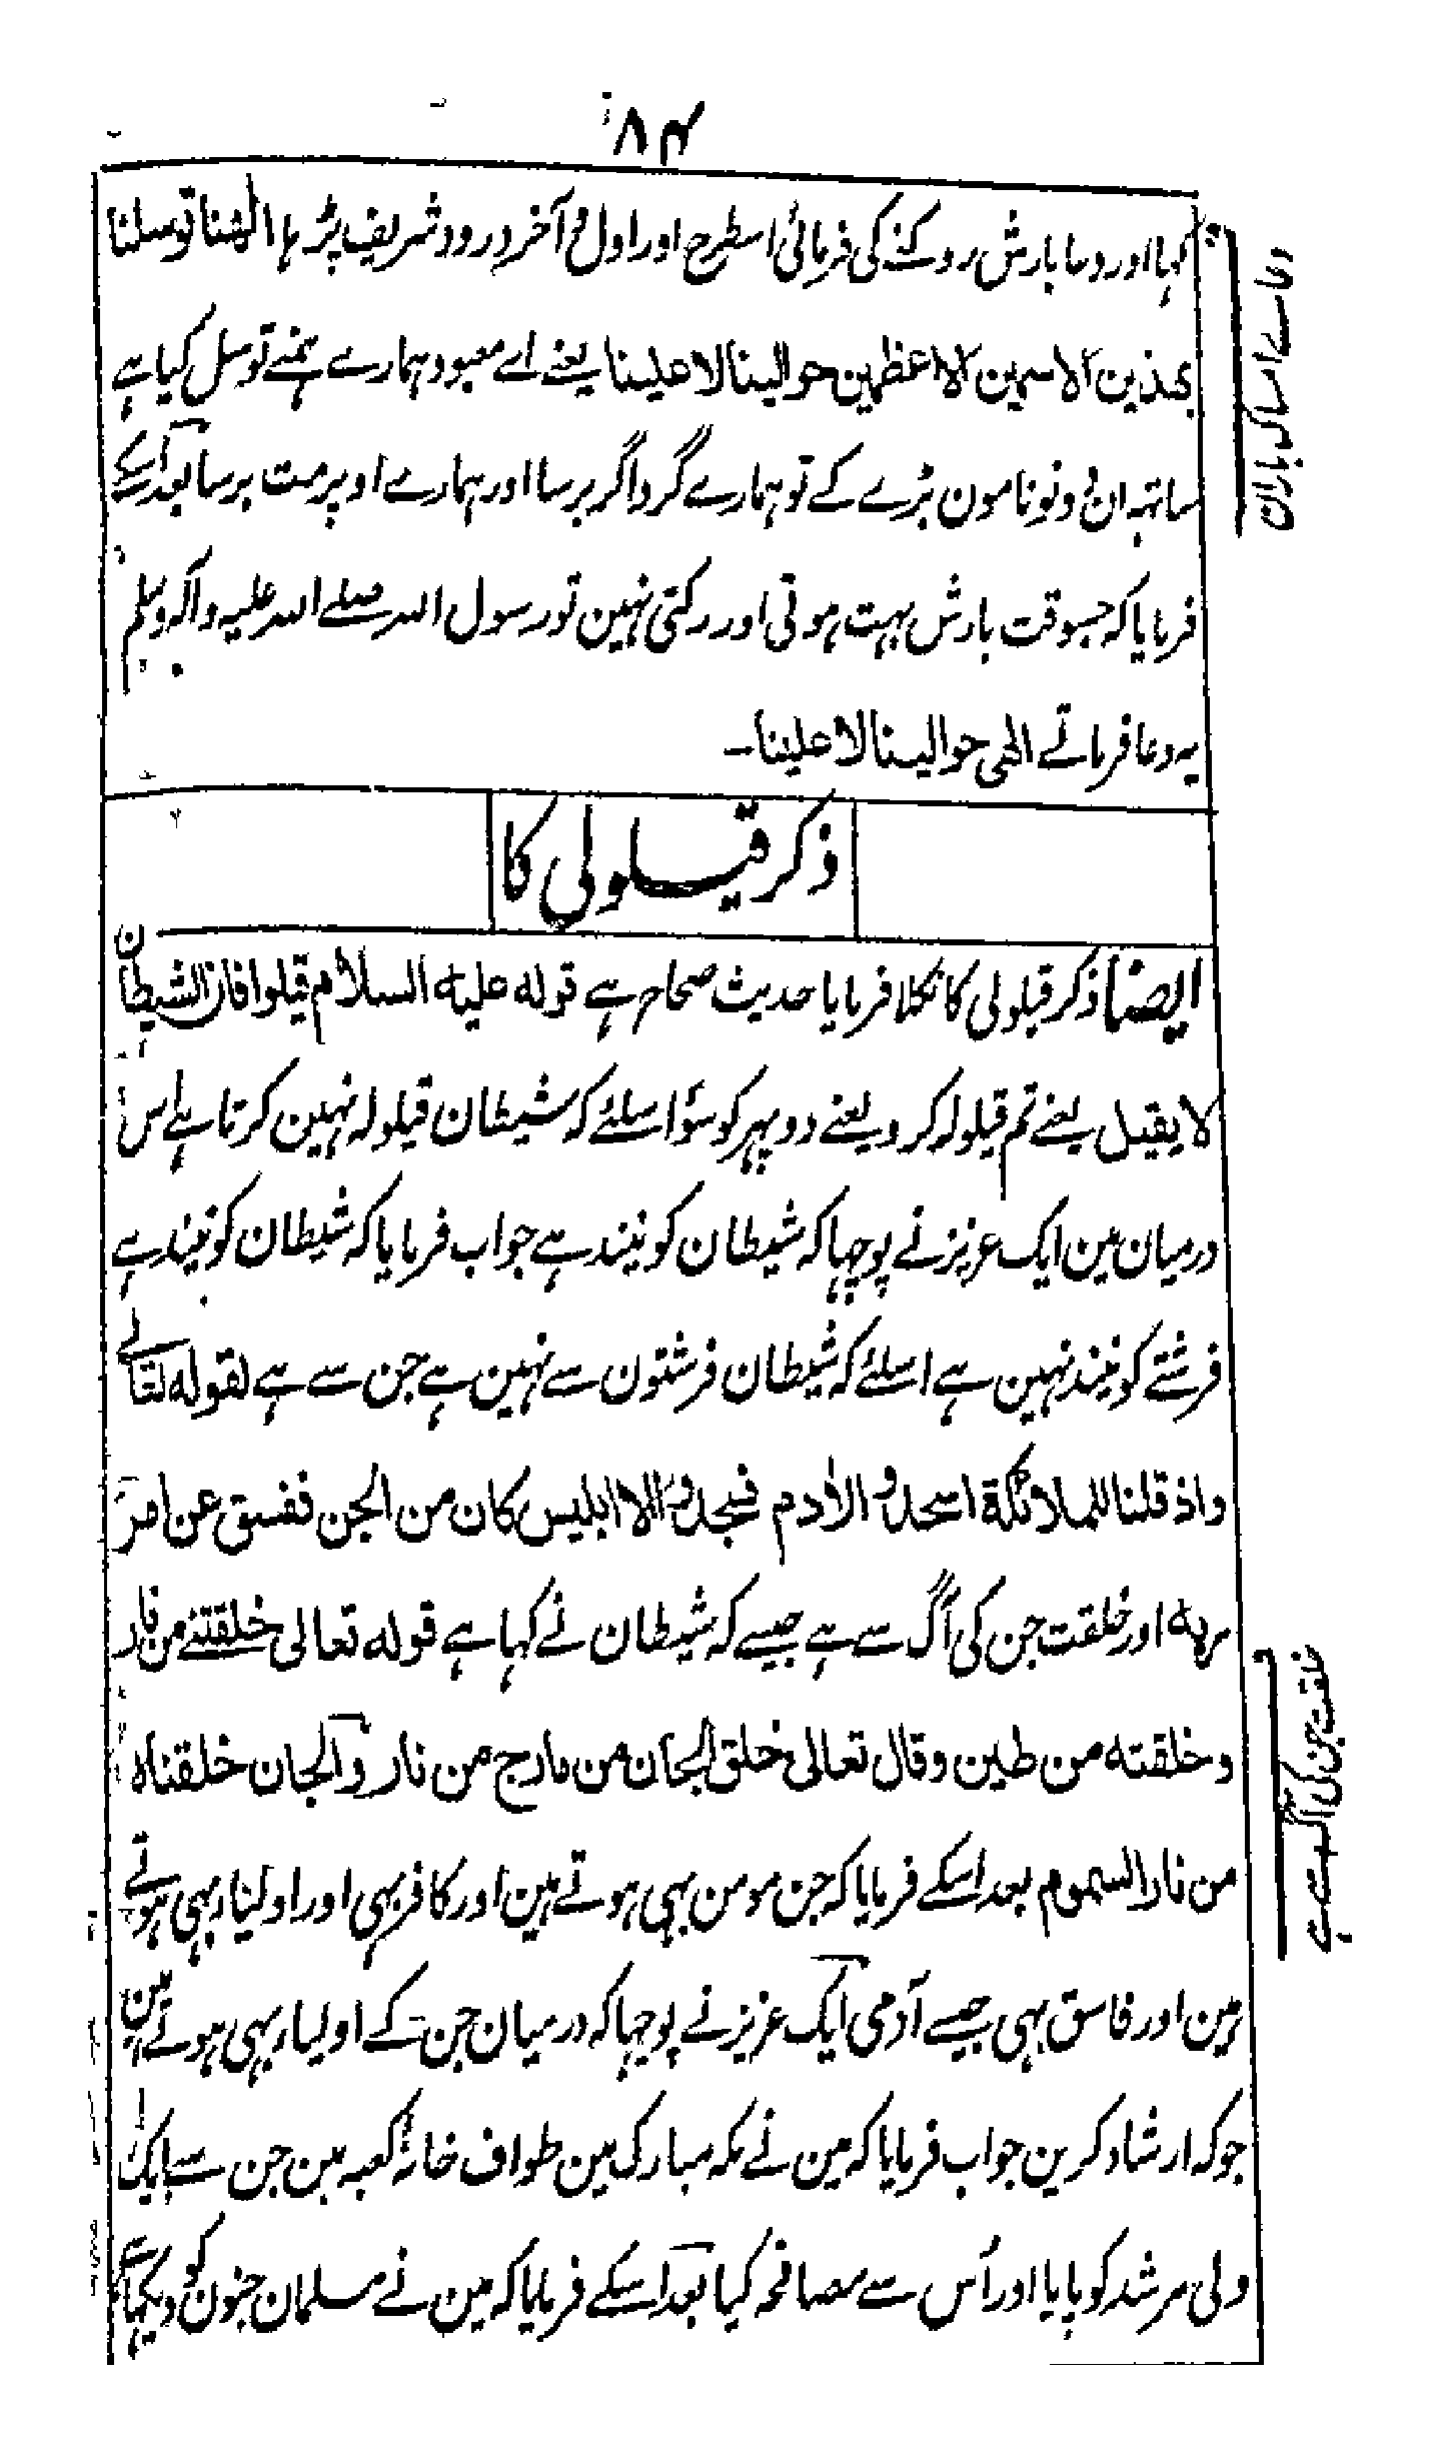 ۸۴
کہا اور دعا بارش روکنے کی فرمائی اسطرح اور اول و آخر درود شریف پڑہا الھنا توسلنا
بھذین الاسمین الاعظمین حوالینا لا علینا یعنے اے معبود ہمارے ہمنے توسل کیا ہے
ساتہہ ان دونو نامون بڑے کے تو ہمارے گرداگرد برسا اور ہمارے اوپر مت برسا بعد اسکے
فرمایا کہ جسوقت بارش بہت ہوتی اور رکتی نہین تو رسول اللہ صلے اللہ علیہ وآلہ وسلم
یہ دعا فرماتے الھی حوالینا لا علینا۔
دعاے امساک باران
ذکر قیلولی کا
ایضاً ذکر قیلولی کا نکلا فرمایا حدیث صحاح ہے قولہ علیہ السلام قیلوا فان الشیطان
لا یقیل یعنے تم قیلولہ کرو یعنے دوپہر کو سؤ اسلئے کہ شیطان قیلولہ نہین کرتا ہے اس
درمیان مین ایک عزیز نے پوچہا کہ شیطان کو نیند ہے جواب فرمایا کہ شیطان کو نیند ہے
فرشتے کو نیند نہین ہے اسلئے کہ شیطان فرشتون سے نہین ہے جن سے ہے لقولہ تعالے
واذ قلنا للملائکة اسجدوا لادم فسجدوا الا ابلیس کان من الجن ففسق عن امر
ربہ اور خلقت جن کی آگ سے ہے جیسے کہ شیطان نے کہا ہے قولہ تعالی خلقتنے من نار
وخلقتہ من طین وقال تعالی خلق الجان من مارج من نار والجان خلقناہ
من نار السموم بعد اسکے فرمایا کہ جن مومن بہی ہوتے ہین اور کافر بہی اور اولیاء بہی ہوتے
ہین اور فاسق بہی جیسے آدمی ایک عزیز نے پوچہا کہ درمیان جن کے اولیاء بہی ہوتے ہین
جو کہ ارشاد کرین جواب فرمایا کہ مین نے مکہ مبارک مین طواف خانۂ کعبہ مین جن سے ایک
ولی مرشد کو پایا اور اُس سے مصافحہ کیا بعد اسکے فرمایا کہ مین نے مسلمان جنون کو دیکہا ہے
خلقت جن کی آگ سے ہے